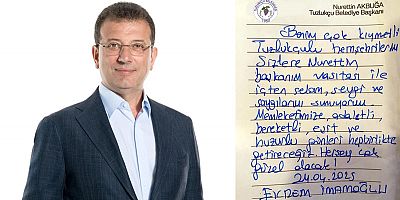 Nurettin AKBUĞA
Tuzlukçu Belediye Başkanı
Benim çok kıymetli
Tuzlukçulu hemşehrilerim
Sizlere Nurettin
başkanım vasıtası ile
içten selam, sevgi ve
saygılarımı sunuyorum.
Memleketimize, adaletli,
bereketli, eşit ve
huzurlu günleri hep birlikte
getireceğiz. Herşey çok
güzel olacak!
24.04.2025
EKREM İMAMOĞLU